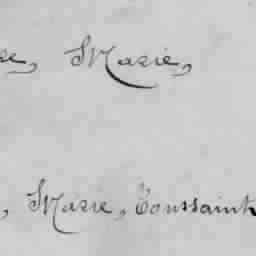 Marie,
, Marie, Toussaint